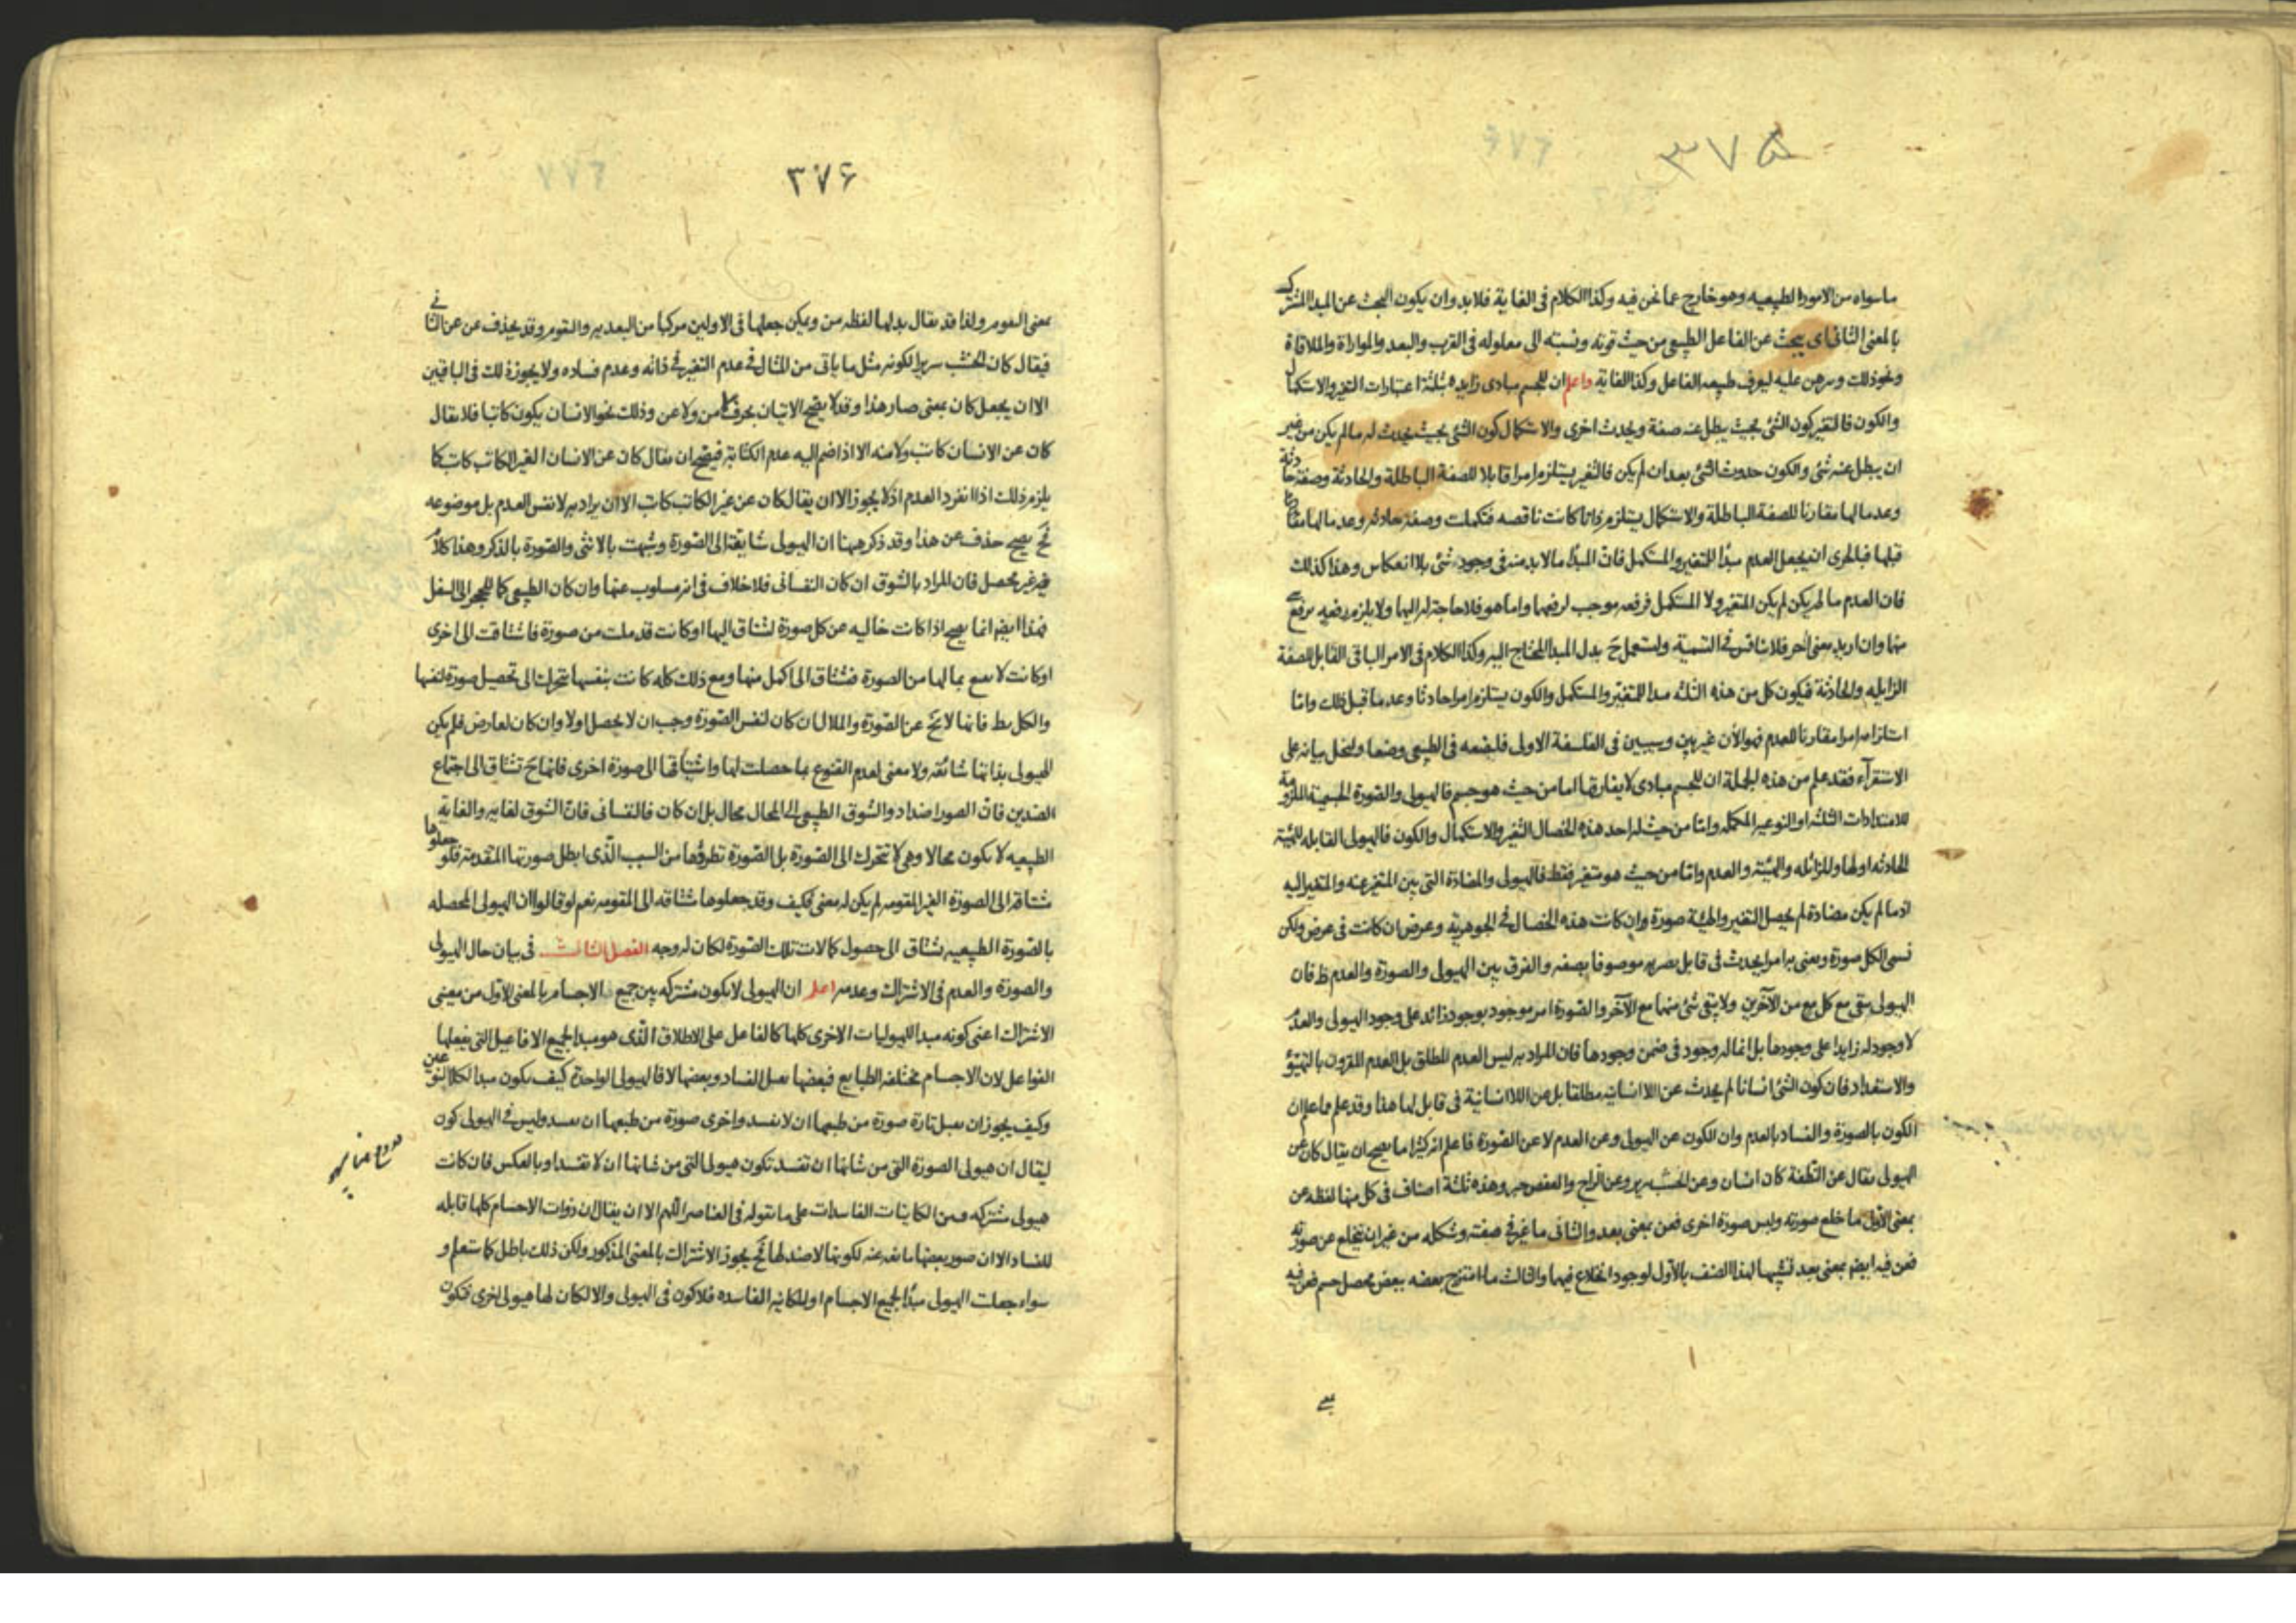 ٣٧۵
ما سواه من الامور الطبيعيه وهو خارج عما نحن فيه وكذا الكلام فى الغاية فلا بد وان يكون البحث عن المبدا المشترك
بالمعنى الثانى اى يبحث عن الفاعل الطبيعى من حيث قوته ونسبته الى معلوله فى القرب والبعد والموازاة والملاقاة
ونحو ذلك وبرهن عليه ليعرف طبيعه الفاعل وكذا الغاية واعلم ان للجسم مبادى زايده بثلثة اعتبارات التغير والاستكمال
والكون فالتغير كون الشئ بحيث يبطل عنه صفة ويحدث اخرى والاستكمال كون الشئ بحيث يحدث له ما لم يكن من غير
ان يبطل عنه شئ والكون حدوث الشئ بعد ان لم يكن فالتغير يستلزم امرا قابلا للصفة الباطلة والحادثة وصفة حادثة
وعدما لها مقارنا للصفة الباطلة والاستكمال يستلزم ذاتا كانت ناقصه فكملت وصفة حادثه وعدما لها
قبلها فبالحرى ان يجعل العدم مبدأ للمتغير والمستكمل فان المبدأ ما لا بد منه فى وجود شئ بلا انعكاس وهذا كذلك
فان العدم ما لم يكن لم يكن المتغير ولا المستكمل فرفعه موجب لرفعهما واما هو فلا حاجة له اليهما ولا يلزم رفعه برفع
منهما وان اريد معنى آخر فلا نناقش فى التسمية ولنستعمل ح بدل المبدا المحتاج اليه وكذا الكلام فى الامر الباقى القابل للصفة
الزايله والحادثة فيكون كل من هذه الثلثه مبدا للمتغير والمستكمل والكون يستلزم امرا حادثا وعدما قبل ذلك واما
استلزامه امرا مقارنا للعدم فهو الآن غير بين وسيبين فى الفلسفة الاولى فليضعه فى الطبيعى وضعا وليحل بيانه على
الاستقرآء فقد علم من هذه الجملة ان للجسم مبادى لا يفارقها اما من حيث هو جسم فالهيولى والصورة الجسمية الملزومة
للامتدادات الثلثه او النوعيه المكمله واما من حيث له احد هذه الخصال التغير والاستكمال والكون فالهيولى القابله للهيئة
الحادثه او لها وللزائله والهيئة والعدم واما من حيث هو متغير فقط فالهيولى والمضادة التى بين المتغير عنه والمتغير اليه
اذ ما لم يكن مضادة لم يحصل التغير والهيئة صورة وان كانت هذه الخصال فى الجوهرية وعرض ان كانت فى عرض ولكن
نسمى الكل صورة ونعنى به امرا يحدث فى قابل يصير به موصوفا بصفه والفرق بين الهيولى والصورة والعدم ظ فان
الهيولى يبقى مع كل مع من الآخرين ولا يبقى شئ منهما مع الآخر والصورة امر موجود بوجود زائد على وجود الهيولى والعدم
لا وجود له زايدا على وجودها بل انما له وجود فى ضمن وجودها فان المراد به ليس العدم المطلق بل العدم المقرون بالتهيؤ
والاستعداد فان كون الشئ انسانا لم يحدث عن اللا انسانيه مطلقا بل عن اللا انسانية فى قابل لها هذا وقد علم مما علم ان
الكون بالصورة والفساد بالعدم وان الكون عن الهيولى وعن العدم لا عن الصورة فاعلم انه كثيرا ما يصح ان يقال كان عن
الهيولى يقال عن النطفة كان انسان وعن الخشب سرير وعن الزاج والعفص حبر وهذه ثلثة اصناف فى كل منها لفظه عن
بمعنى الاول ما خلع صورته ولبس صورة اخرى فعن بمعنى بعد والثانى ما غير فى صفته وشكله من غير ان يخلع عن صورته
فعن فيه ايضم بمعنى بعد تشبيها لهذا الصنف بالاول لوجود انخلاع فيهما والثالث ما امتزج بعضه ببعض فحصل جسم فعن فيه
٣٧۶
بمعنى التقوم ولذا قد يقال بدلها لفظه من ويمكن جعلها فى الاولين مركبا من البعديه والتقوم وقد يحذف عن عن الثانى
فيقال كان الخشب سريرا لكونه مثل ما ياتى من المثال فى عدم التغير فى ذاته وعدم فساده ولا يجوز ذلك فى الباقيين
الا ان يجعل كان بمعنى صار هذا وقد لا يصح الاتيان بحرف من ولا عن وذلك نحو الانسان يكون كاتبا فلا يقال
كان عن الانسان كاتب ولا منه الا اذا ضم اليه عدم الكتابة فيصح ان يقال كان عن الانسان الغير الكاتب كاتب كما
يلزم ذلك اذا انفرد العدم اذ لا يجوز الا ان يقال كان عن غير الكاتب كاتب الا ان يراد به لا نفس العدم بل موضوعه
فح يصح حذف عن هذا وقد ذكر ههنا ان الهيولى شايقة الى الصورة وشبهت بالانثى والصورة بالذكر وهذا كلام
غير محصل فان المراد بالشوق ان كان النفسانى فلا خلاف فى انه مسلوب عنها وان كان الطبيعى كما للحجر الى السفل
فهذا ايضم انما يصح اذا كانت خاليه عن كل صورة لتشتاق اليها او كانت قد ملت من صورة فاشتاقت الى اخرى
او كانت لا تقنع بما لها من الصورة فتشتاق الى اكمل منها ومع ذلك كله كانت بنفسها تتحرك الى تحصيل صورة لنفسها
والكل بط فانها لا تخ عن الصورة والملال ان كان لنفس الصورة وجب ان لا يحصل اولا وان كان لعارض فلم يكن
الهيولى بذاتها شائقه ولا معنى لعدم القنوع بما حصلت لها واشتياقها الى صورة اخرى فانها ح تشتاق الى اجتماع
الضدين فان الصور اضداد والشوق الطبيعى الى المحال محال بل ان كان فالنفسانى فان الشوق لغايه والغاية
الطبيعيه لا يكون محالا وهى لا تتحرك الى الصورة بل الصورة تطرؤها من السبب الذى ابطل صورتها المتقدمة فلو جعلوها
مشتاقة الى الصورة الغير المقومه لم يكن له معنى فكيف وقد جعلوها مشتاقه الى المقومه نعم لو قالوا ان الهيولى المحصله
بالصورة الطبيعيه تشتاق الى حصول كمالات تلك الصورة لكان له وجه الفصل الثالث فى بيان حال الهيولى
والصورة والعدم فى الاشتراك وعدمه اعلم ان الهيولى لا يكون مشتركه بين جميع الاجسام بالمعنى الاول من معنيى
الاشتراك اعنى كونه مبدا للهيوليات الاخرى كلها كالفاعل على الاطلاق الذى هو مبدا لجميع الافاعيل التى يفعلها
الفواعل لان الاجسام مختلفه الطبايع فبعضها يقبل الفساد وبعضها لا فالهيولى الواحدة كيف يكون مبدا لكلا النوعين
وكيف يجوز ان يقبل تارة صورة من طبعها ان لا تفسد واخرى صورة من طبعها ان تفسد وليس فى الهيولى كون
ليقال ان هيولى الصورة التى من شانها ان تفسد تكون هيولى التى من شانها ان لا تفسد او بالعكس فان كانت
هيولى مشتركه فمن الكاينات الفاسدات على ما نقوله فى العناصر اللهم الا ان يقال ان ذوات الاجسام كلها قابله
للفساد الا ان صور بعضها مانعه عنه لكونها لا ضد لها فح يجوز الاشتراك بالمعنى المذكور ولكن ذلك باطل كما ستعلم و
سواء جعلت الهيولى مبدأ لجميع الاجسام او للكائنه الفاسده فلا كون فى الهيولى والا لكان لها هيولى اخرى فتكون